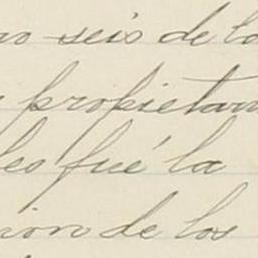 no seis de lo
propietari
leo fué la
nion de los